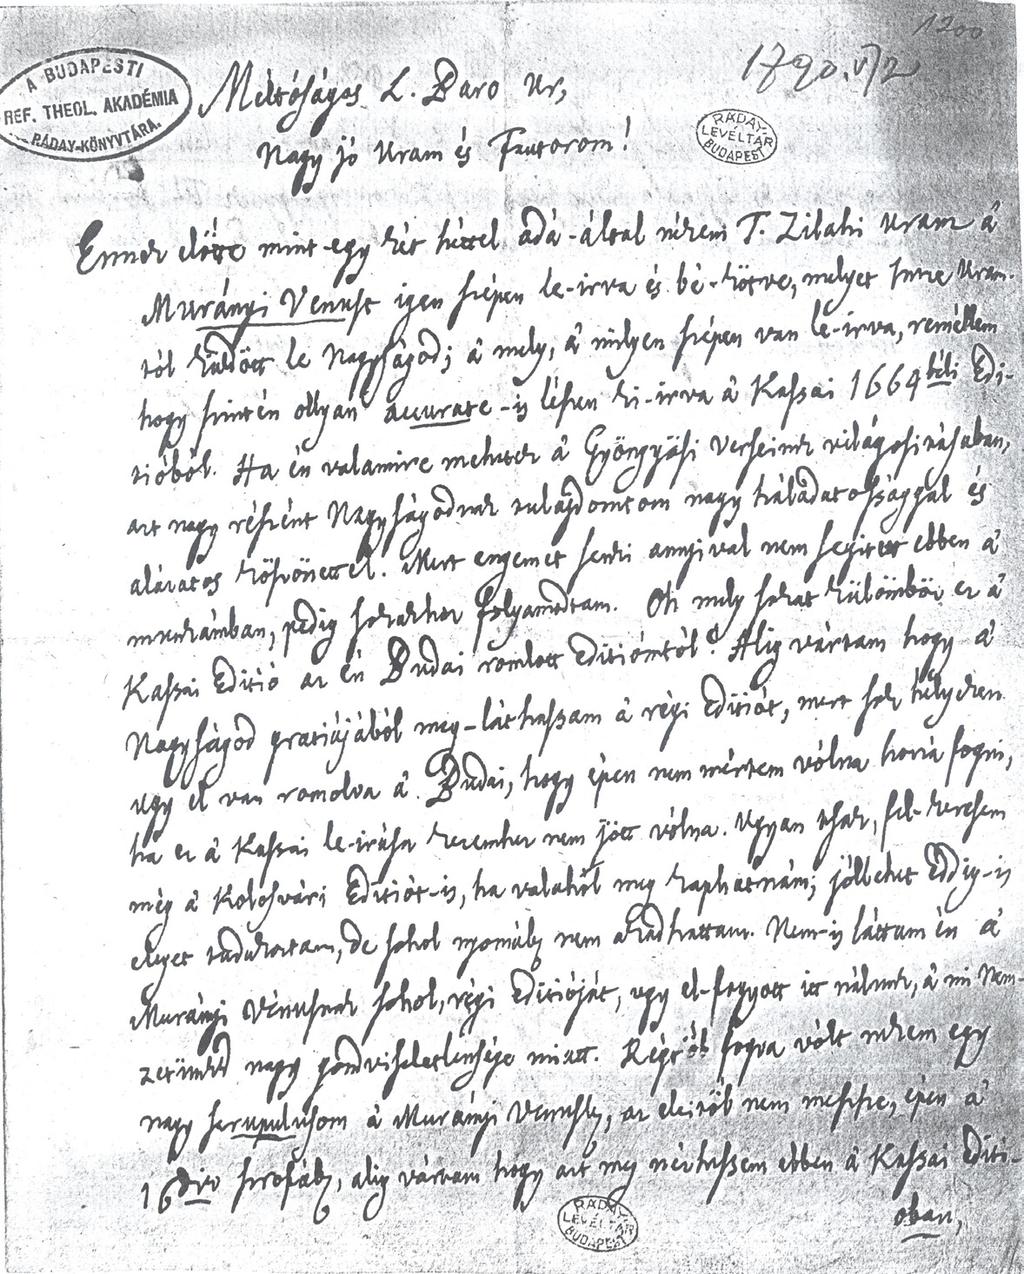 1200
1790. V/2
A BUDAPESTI
REF. THEOL. AKADÉMIA
RÁDAY-KÖNYVTÁRA.
RÁDAY
LEVÉLTÁR
BUDAPEST
Méltóságos L. Baro Ur,
Nagy jó Uram és Fautorom!
Ennek előtte mint-egy két héttel adá-által nékem T. Zilahi Uram á
Murányi Venust igen szépen le-irva és bé-kötve, mellyet Imre Uram-
tól küldött le Nagyságod; á mely, á milyen szépen van le-irva, reméllem
hogy szintén ollyan accurate-is lészen ki-irva á Kassai 1664béli Edi-
tióból. Ha én valamire mehetek á Gyöngyösi Verseinek világositásában,
azt nagy részént Nagyságodnak tulajdonitom nagy háládatossággal és
alázatos köszönettel. Mert engemet senki annyival nem segitett ebben á
munkámban, pedig sokakhoz folyamodtam. Oh mely sokat külömböz ez á
Kassai Editió az én Budai romlott Editiómtól! Alig vártam hogy á
Nagyságod gratiájából meg-láthassam á régi Editiót, mert sok hellyeken
ugy el van romolva á Budai, hogy épen nem mértem vólna hozzá fogni,
ha ez á Kassai le-irása kezemhez nem jött vólna. Ugyan tsak, fel-keresem
még á Kolosvári Editiót-is, ha valahól meg kaphatnám; jóllehet Eddig-is
eleget tudakoztam, de sohol nyomába nem akadhattam. Nem-is láttam én á
Murányi Vénusnak sohol, régi Editióját, ugy el-fogyott itt nálunk, á mi Nem-
zetünknek nagy gondviseletlensége miatt. Régtől fogva vólt nékem egy
nagy scrupulusom á Murányi Venusba, az elejitől nem messze, épen á
16dik strofába, alig vártam hogy azt meg nézhessem ebben á Kassai Editi-
oban,
RÁDAY
LEVÉLTÁR
BUDAPEST